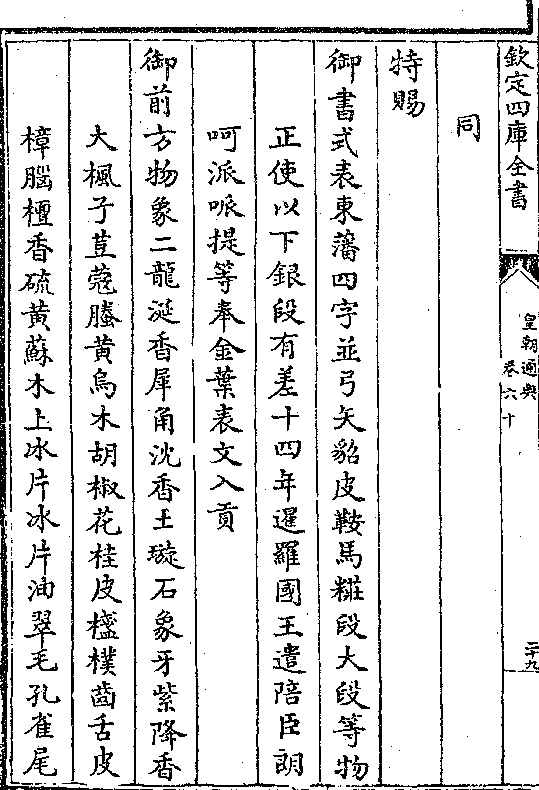 欽定四庫全書
皇朝通典
卷六十
二十九
同
特賜
御書式表東藩四字並弓矢貂皮鞍馬糚段大段等物
正使以下銀段有差十四年暹羅國王遣陪臣朗
呵派哌提等奉金葉表文入貢
御前方物象二龍涎香犀角沈香土璇石象牙紫降香
大楓子荳蔻螣黄烏木胡椒花桂皮櫨樸齒舌皮
樟腦檀香硫黄蘇木上冰片冰片油翠毛孔雀尾